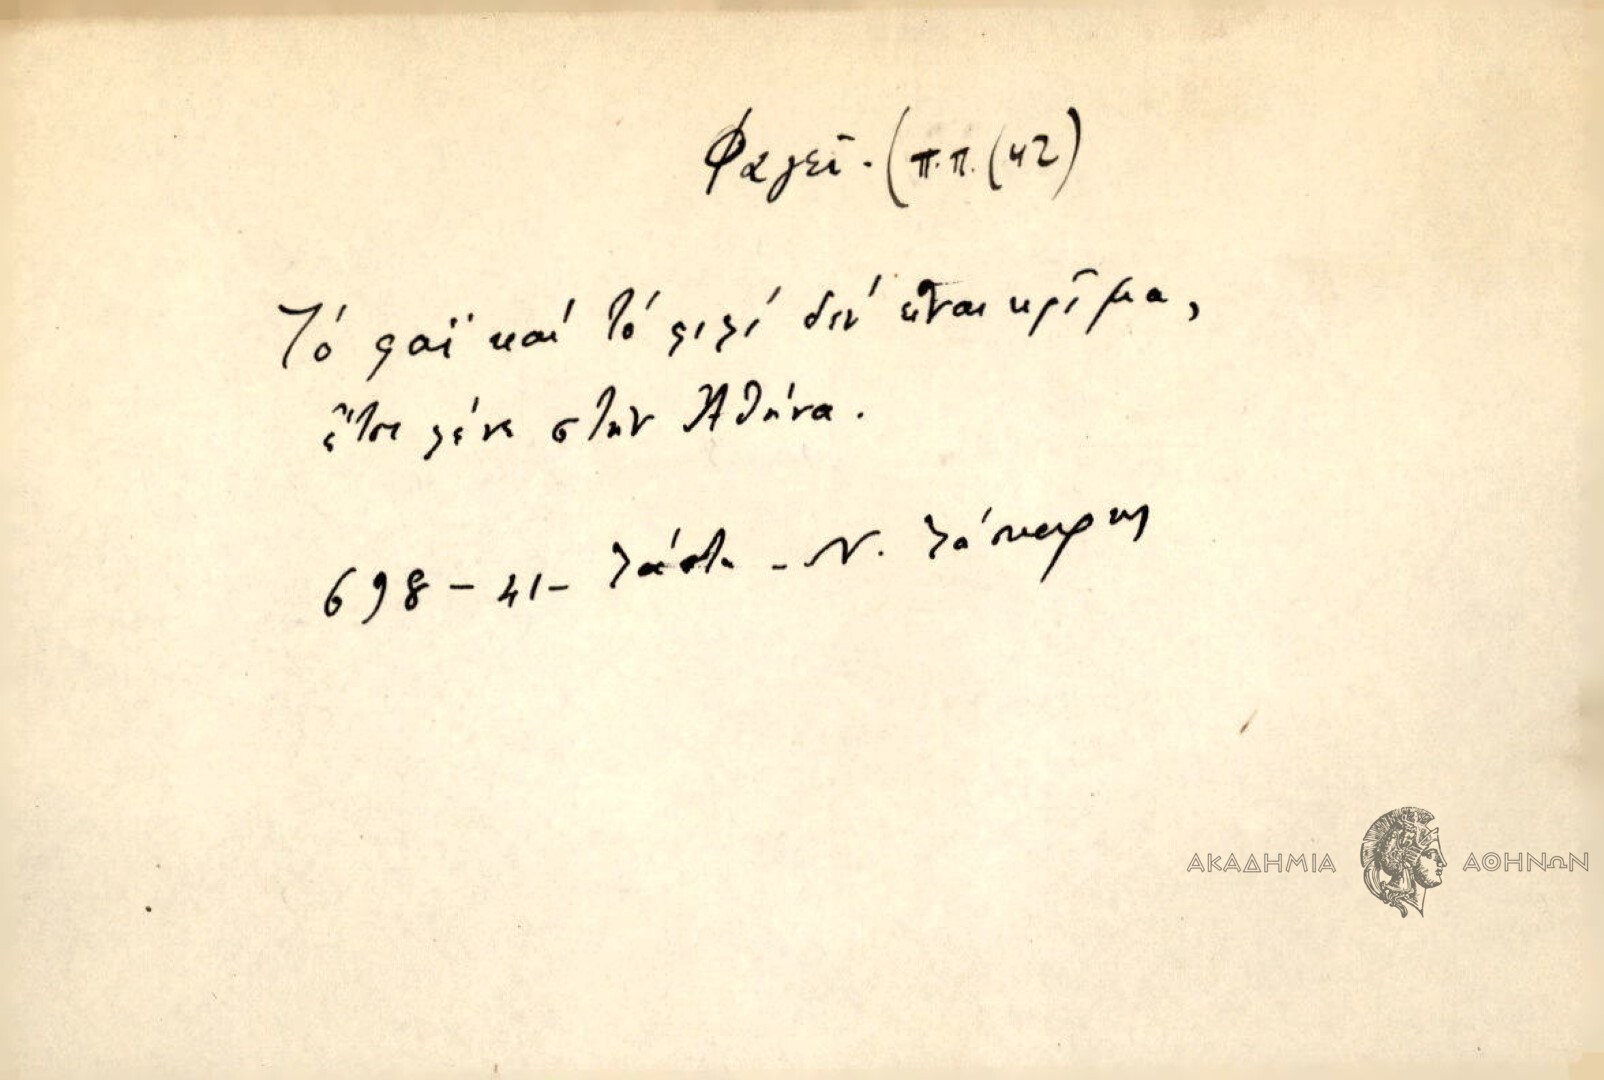 Φαγεῖ. (π.π. (42)
Τό φαΐ καί τό φιλί δέν εἶναι κρῖμα,
ἔτσι λένε στήν Ἀθήνα.
698 - 41 - Λάστα - Ν. Λάσκαρης
ΑΚΑΔΗΜΙΑ ΑΘΗΝΩΝ